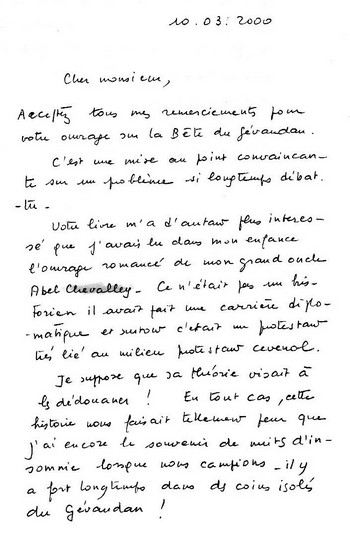 10.03.2000
Cher monsieur,
Acceptez tous mes remerciements pour
votre ouvrage sur la Bête du Gévaudan.
C'est une mise au point convaincan-
te sur un problème si longtemps débat-
-tu-
Votre livre m'a d'autant plus interes-
sé que j'avais lu dans mon enfance
l'ouvrage romancé de mon grand oncle
Abel Chevalley - Ce n'était pas un his-
torien il avait fait une carrière diplo-
matique et surtout c'était un protestant
très lié au milieu protestant cevenol.
Je suppose que sa théorie visait à
les dédouaner ! En tout cas, cette
histoire nous faisait tellement peur que
j'ai encore le souvenir de nuits d'in-
somnie lorsque nous campions - il y
a fort longtemps dans ds coins isolés
du Gévaudan !